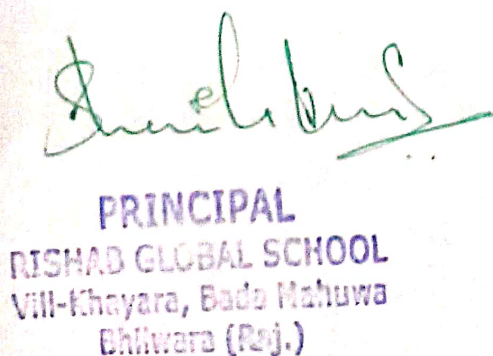 PRINCIPAL
RISHAB GLOBAL SCHOOL
Vill-Khayara, Bada Mahuwa
Bhilwara (Raj.)